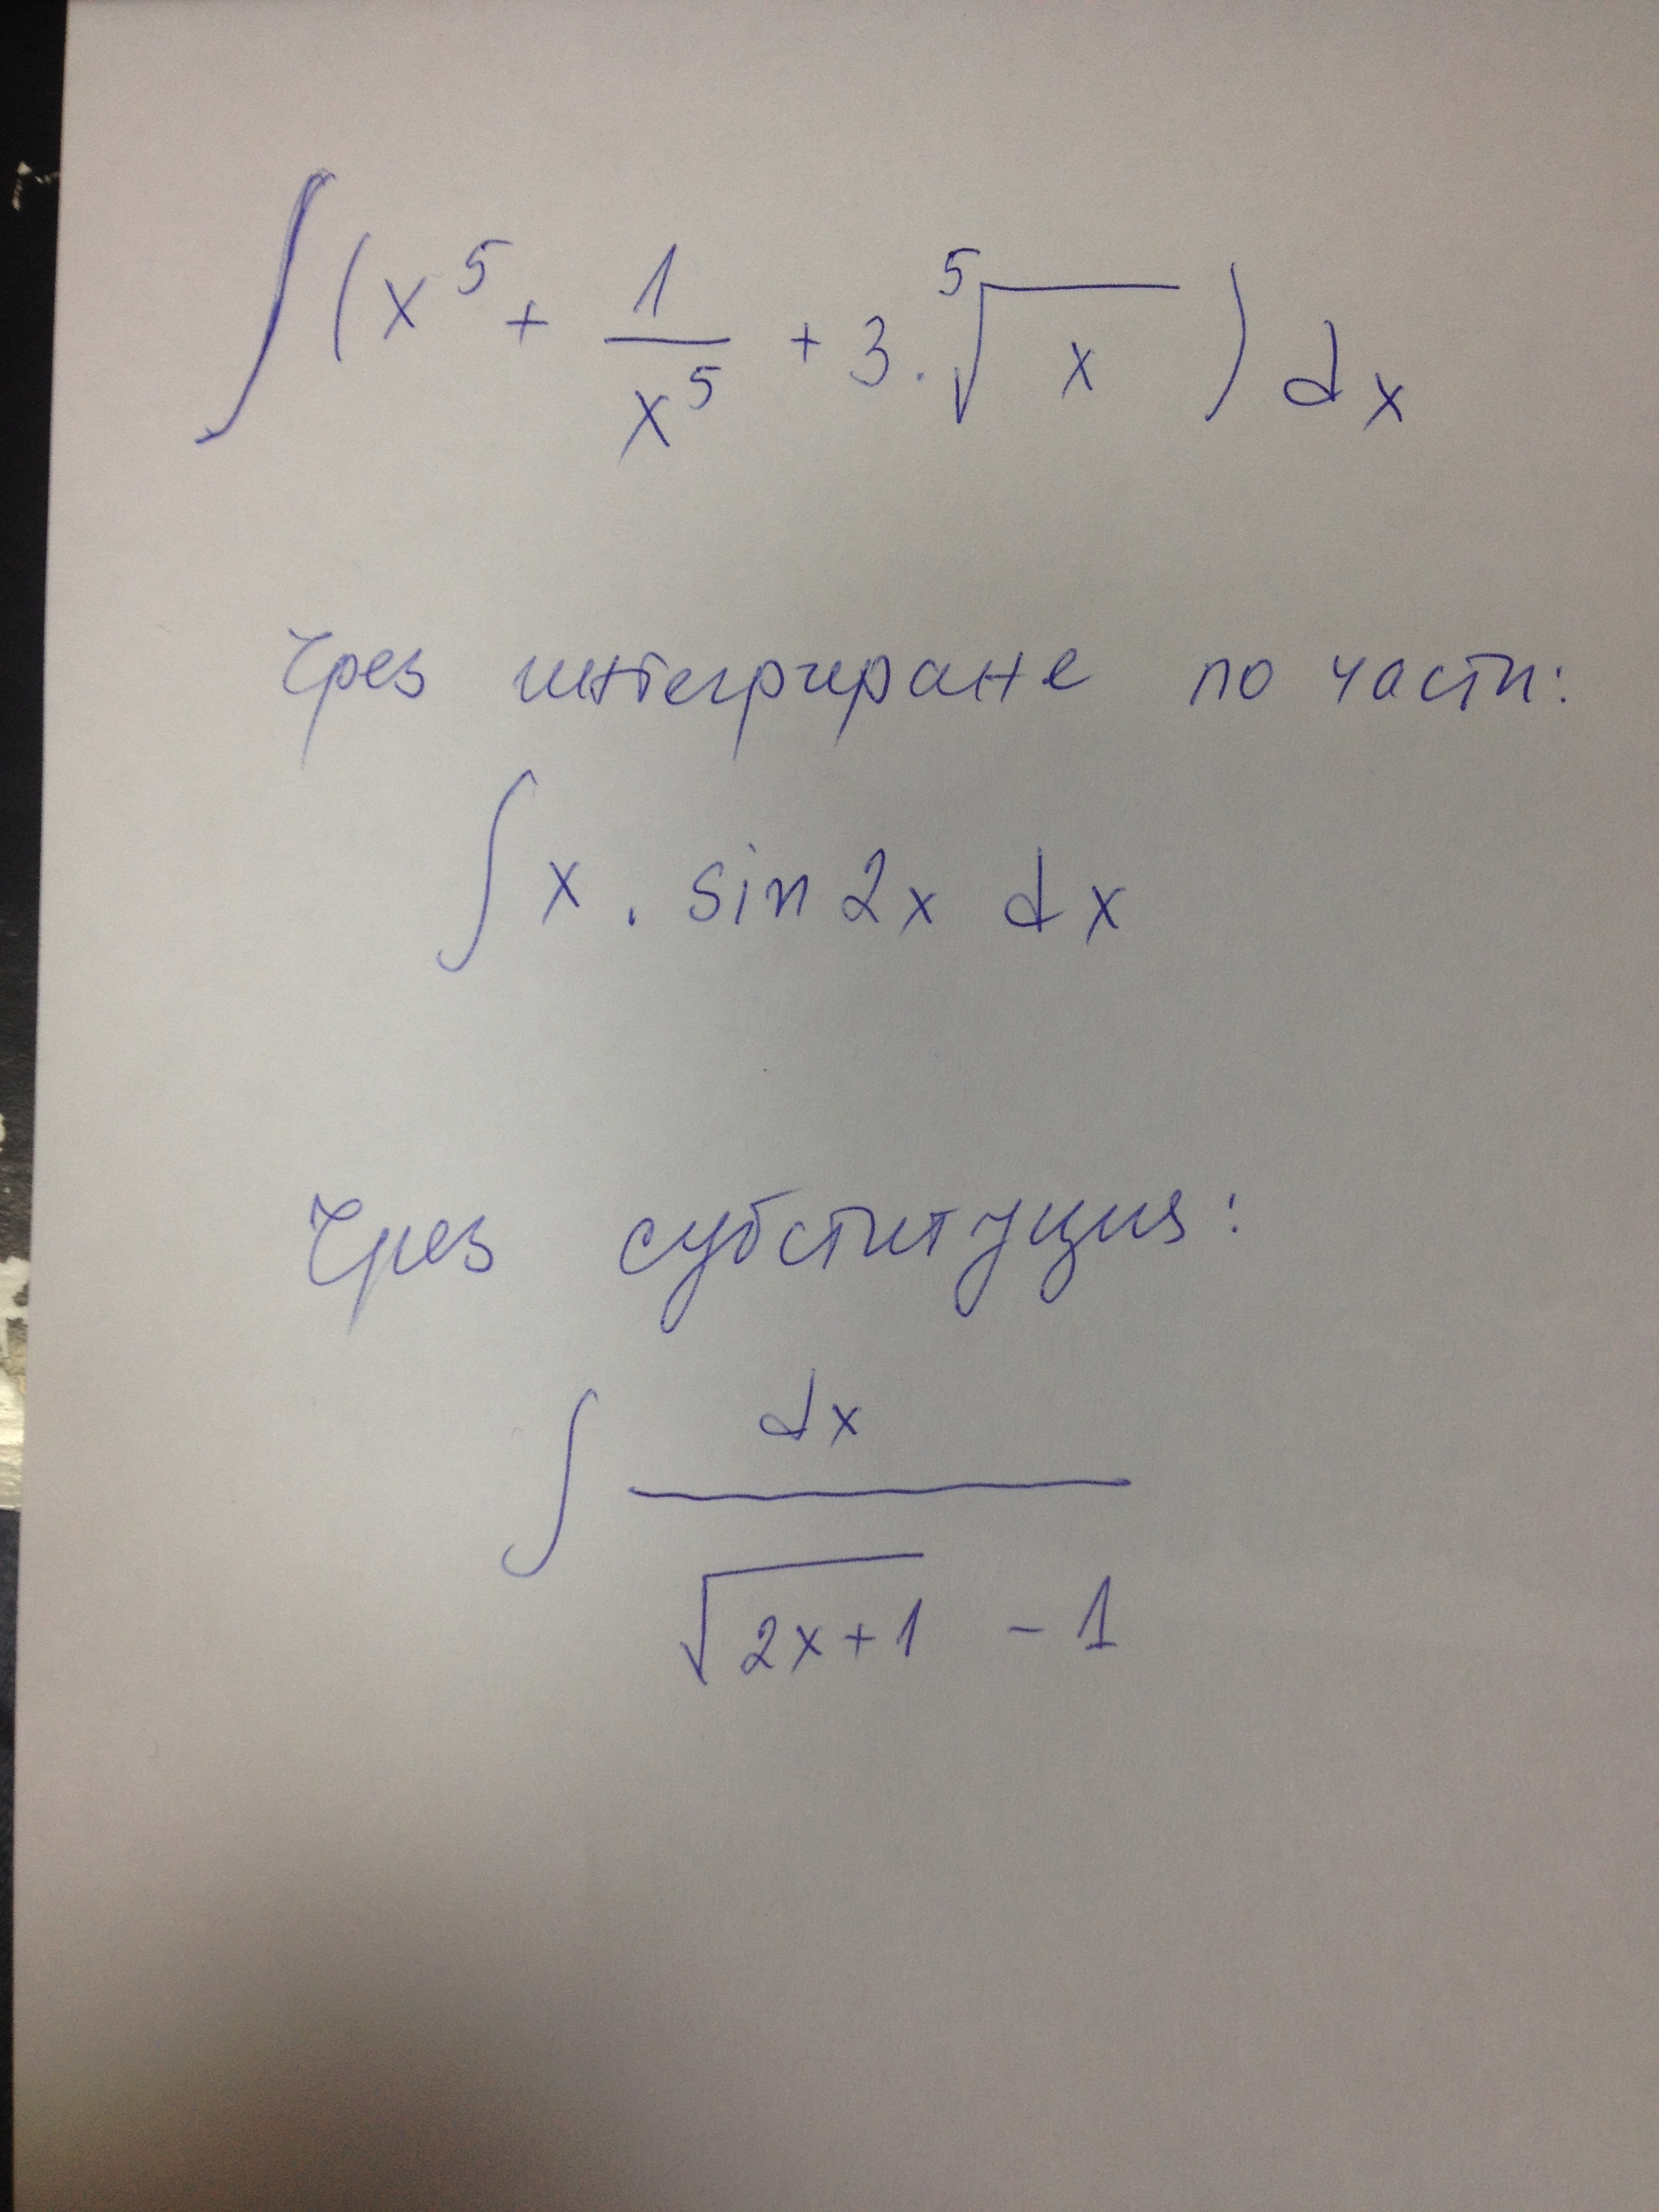 ∫(x⁵ + 1/x⁵ + 3.⁵√x) dx
Чрез интегриране по части:
∫x . sin 2x dx
Чрез субституция:
∫ dx / (√(2x+1) - 1)